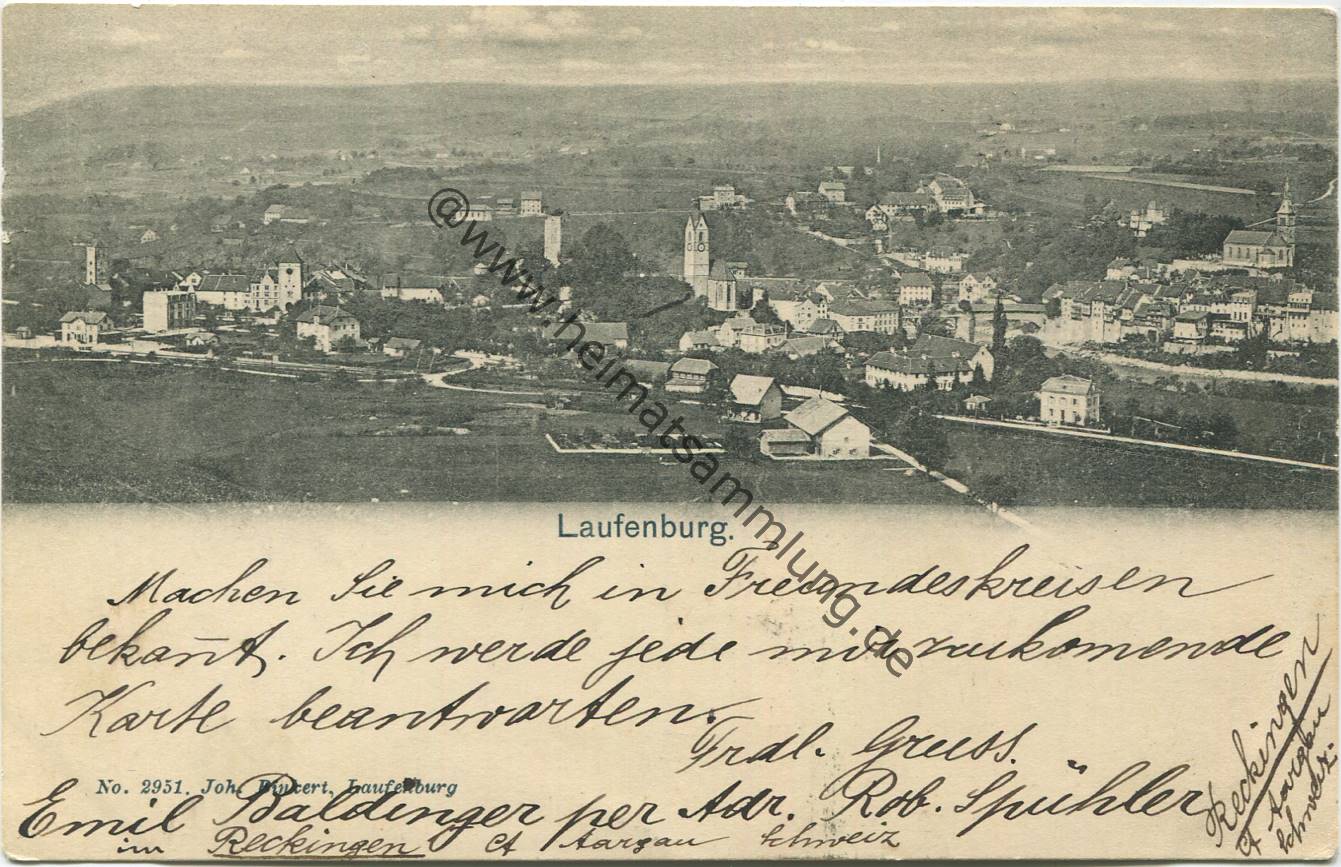 @www.heimatsammlung.de
Laufenburg.
Machen Sie mich in Freundeskreisen
bekan̄t. Ich werde jede mir zukomende
Karte beantworten.
Frdl. Gruss.
No. 2951. Joh. Binkert, Laufenburg
Emil Baldinger per Adr. Rob. Spühler
im Reckingen Ct Aargau Schweiz
Reckingen
Ct Aargau
Schweiz